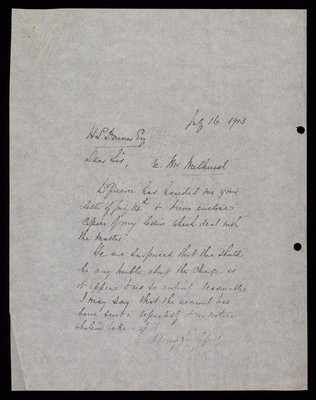 July 16. 1913
H. S. Bonner Esq
Dear Sir,
re. Mr
D. has handed me your
letter of July 14th & I now enclose
copies of my letters which deal with
the matter.
We are surprised that there should
be any trouble about the charge as
it appears to us so entirely reasonable
I may say that the account has
been sent in repeatedly & no notice
whatever taken of it
Yours